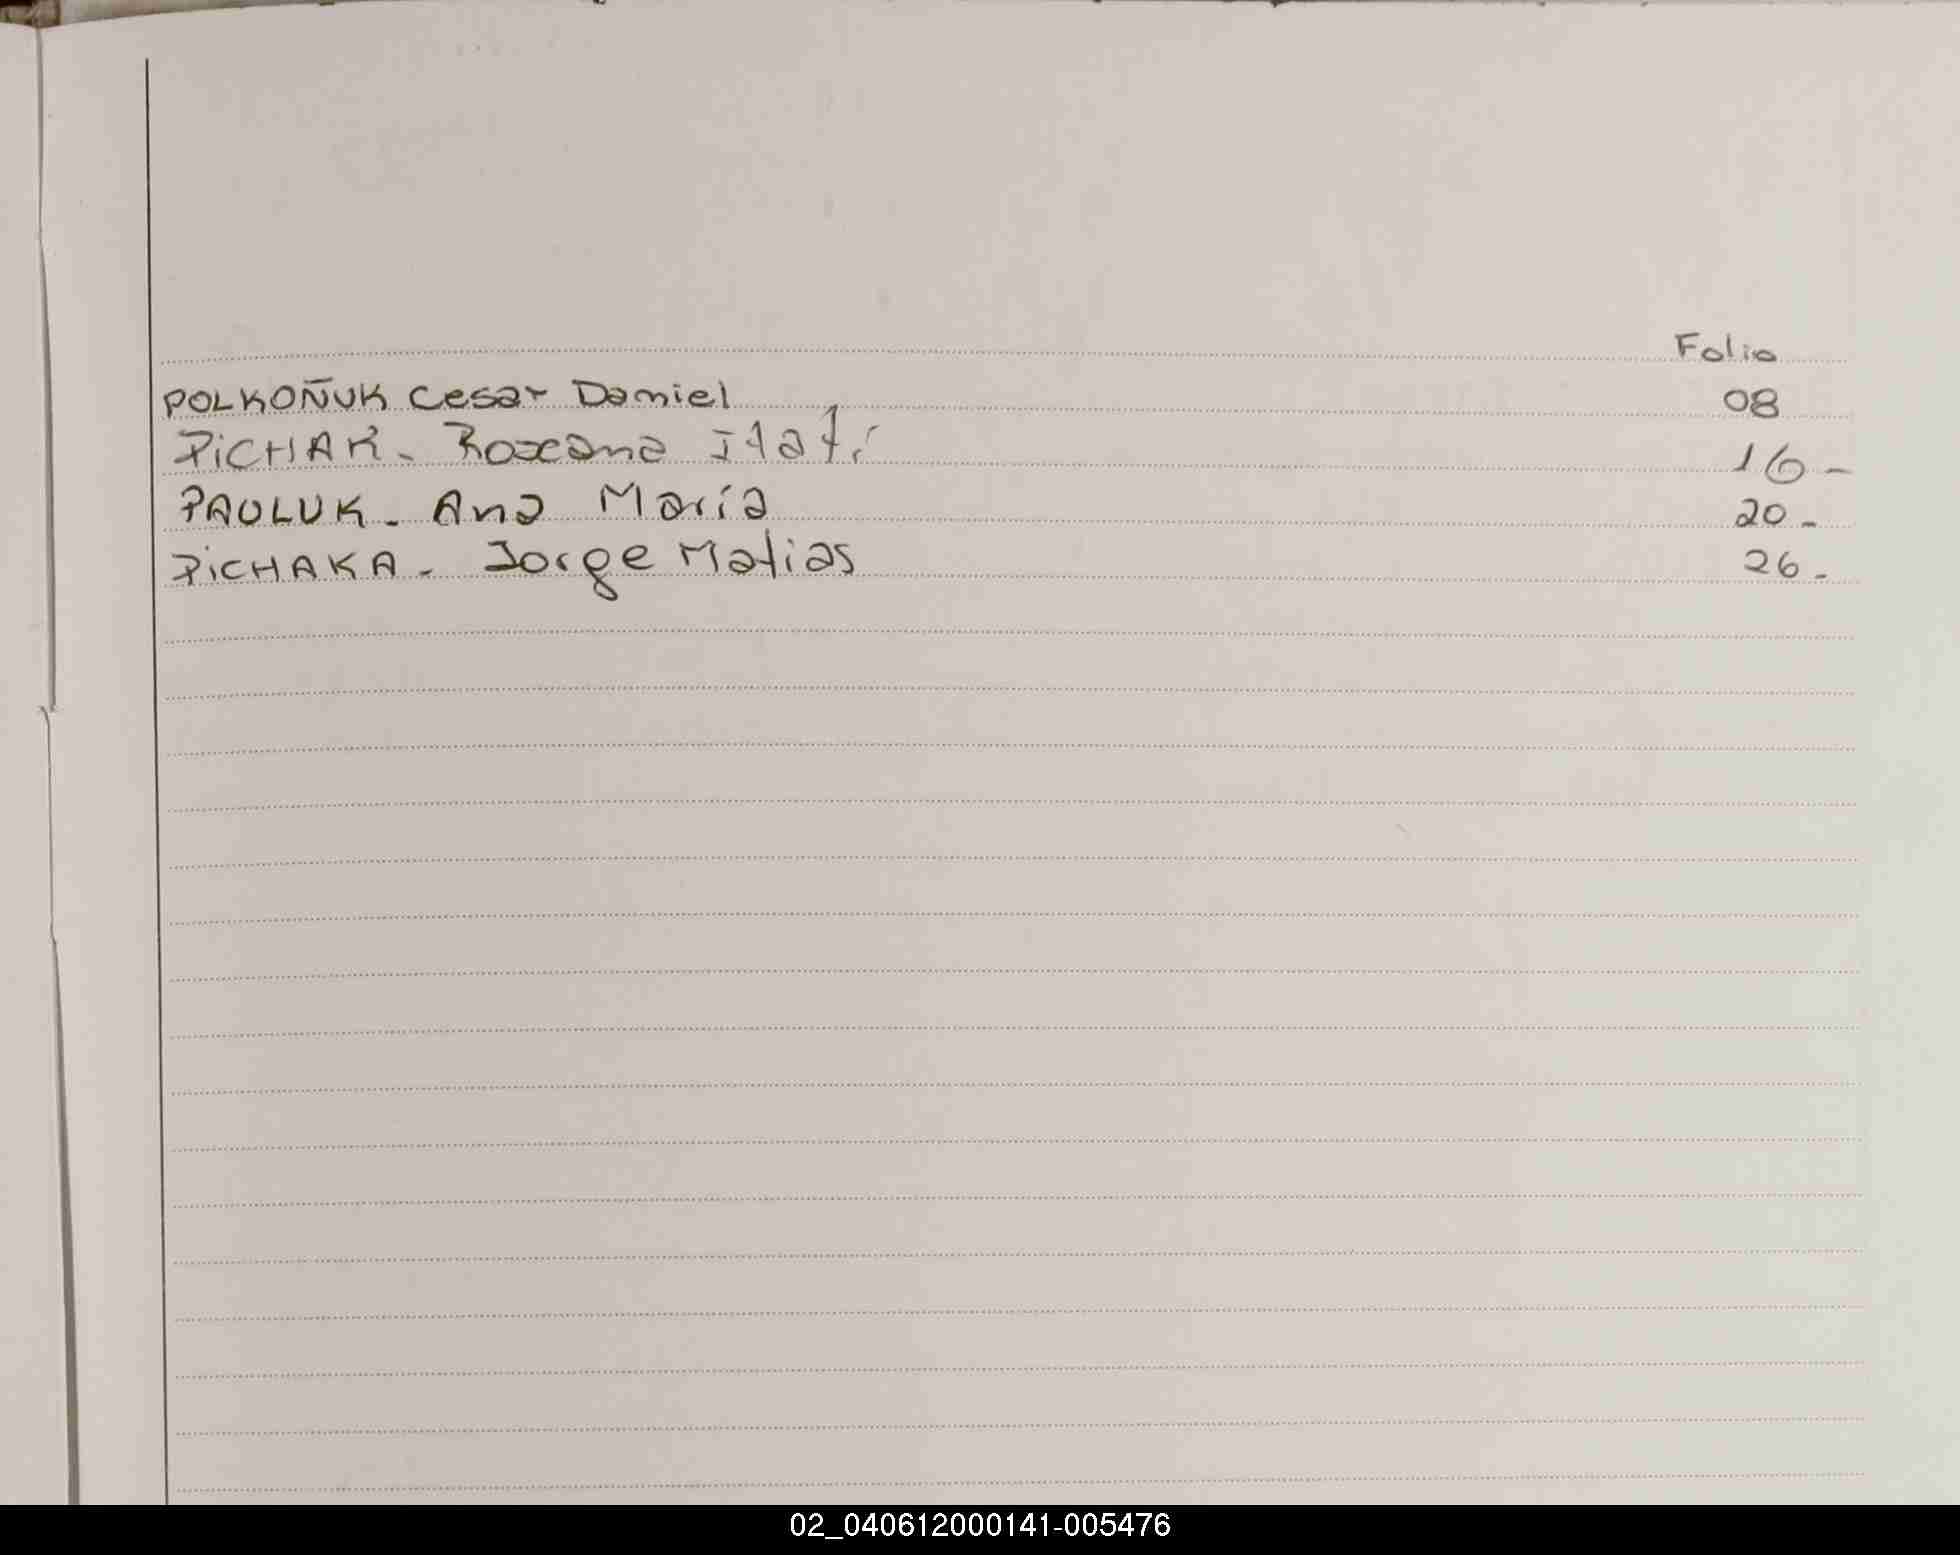 Folio
POLKOÑUK Cesar Damiel 08
PiCHAK - Roxana Itatí 16 -
PAULUK - Ana María 20 -
PiCHAKA - Jorge Matias 26 -
02_040612000141-005476